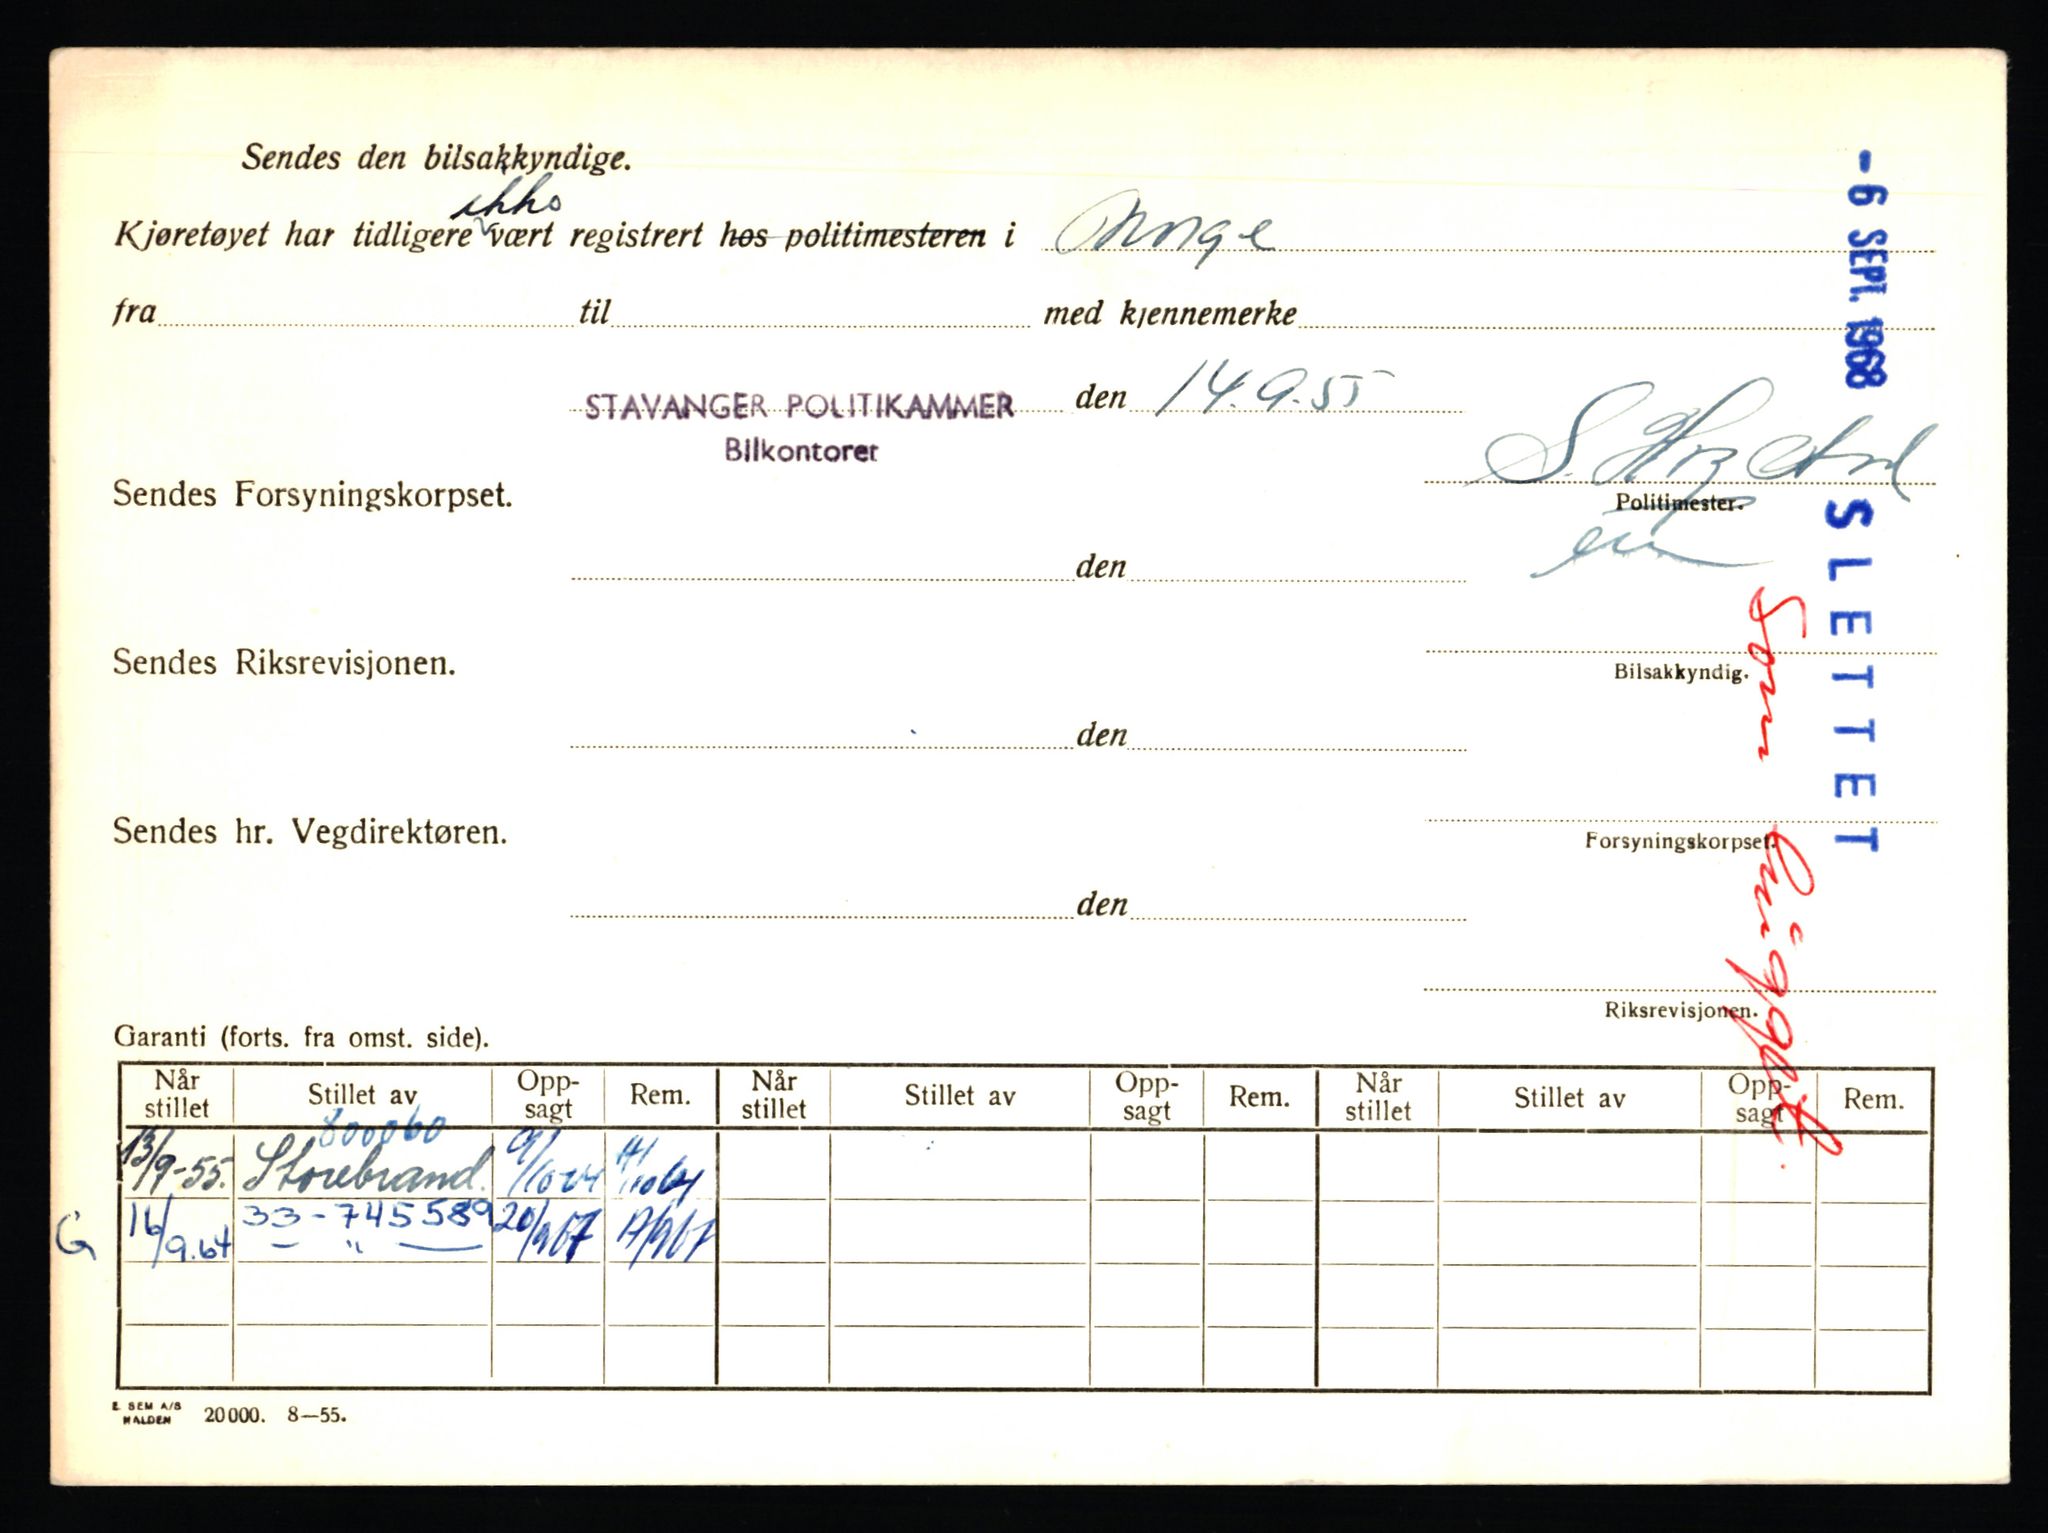 Sendes den bilsakkyndige.
ikke
Kjøretøyet har tidligere vært registrert hos politimesteren i Norge
fra til med kjennemerke
STAVANGER POLITIKAMMER den 14.9.55
Bilkontoret
Sendes Forsyningskorpset.
Politimester.
den
Sendes Riksrevisjonen.
Bilsakkyndig.
den
Sendes hr. Vegdirektøren.
Forsyningskorpset.
den
Riksrevisjonen.
- 6 SEPT. 1968 SLETTET
Som
Garanti (forts. fra omst. side).
Når stillet Stillet av Opp-sagt Rem. Når stillet Stillet av Opp-sagt Rem. Når stillet Stillet av Opp-sagt Rem.
800060
13/9-55. Storebrand.
G 16/9.64 33-745589 20/967
— " —
E. SEM A/S
HALDEN 20000. 8—55.